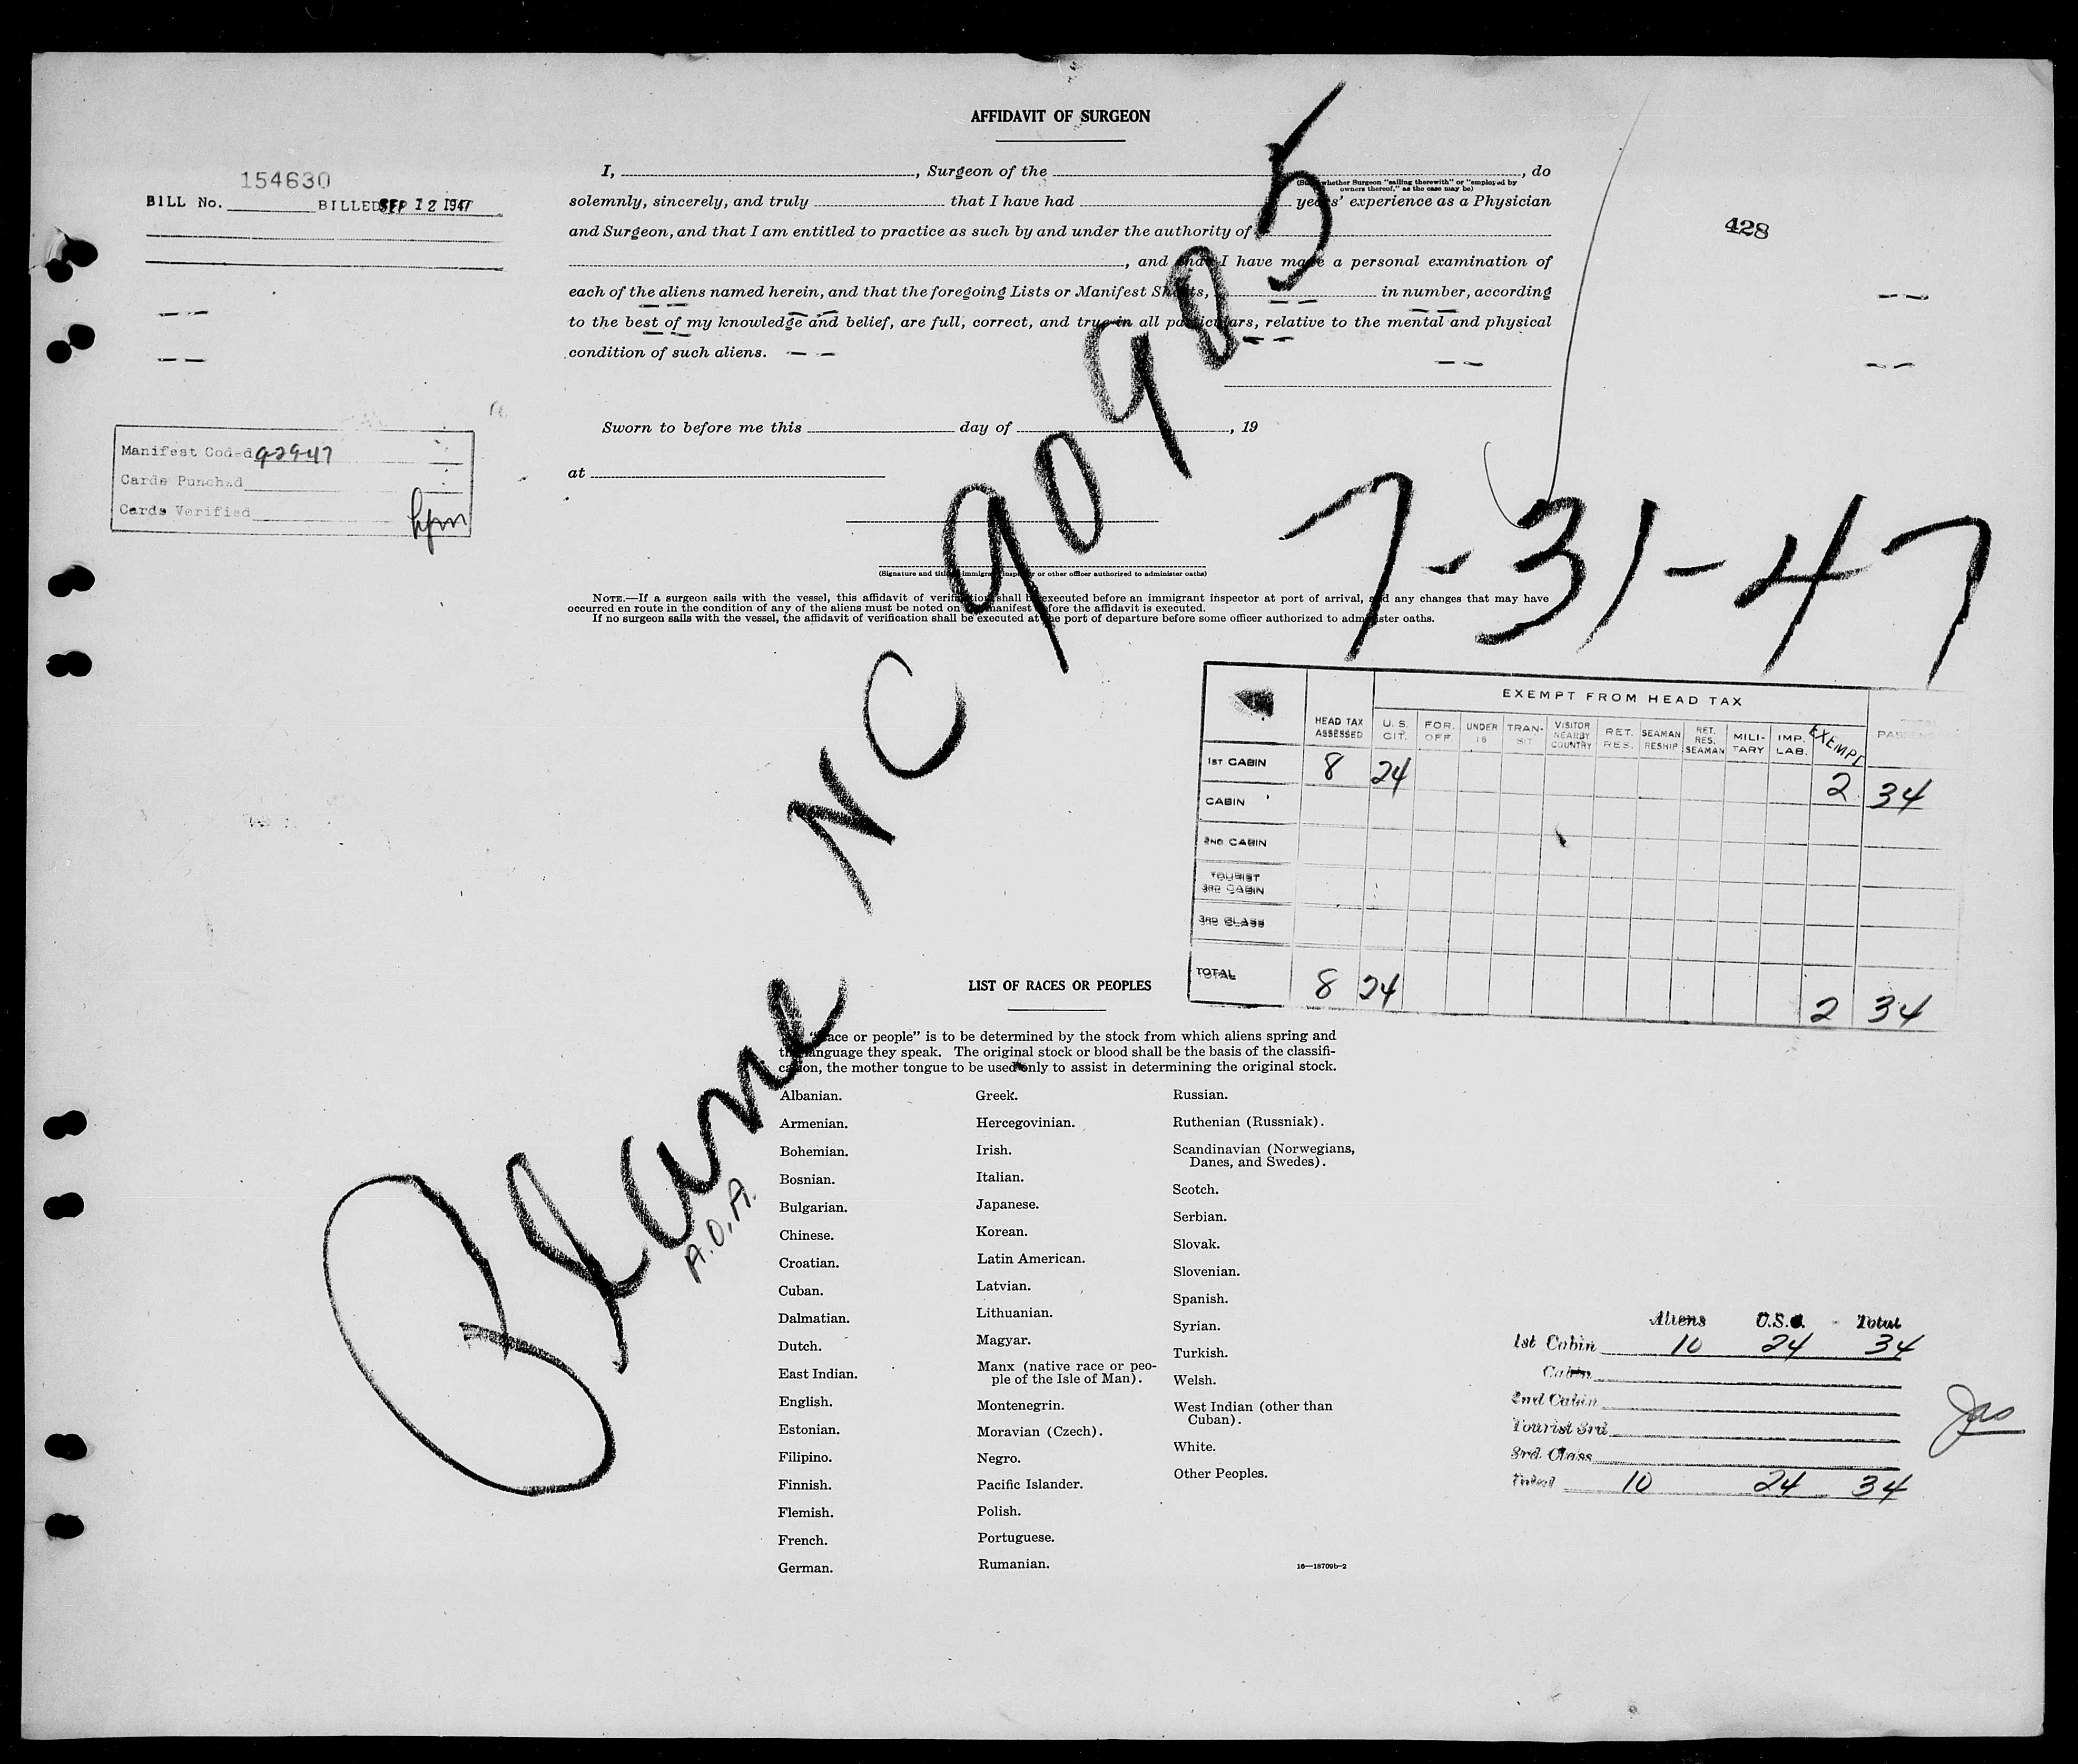 AFFIDAVIT OF SURGEON
154630
BILL No. BILLED SEP 12 1947
I, , Surgeon of the , do
whether Surgeon "sailing therewith" or "employed by
owners thereof," as the case may be)
solemnly, sincerely, and truly that I have had years' experience as a Physician
and Surgeon, and that I am entitled to practice as such by and under the authority of
, and that I have made a personal examination of
each of the aliens named herein, and that the foregoing Lists or Manifest Sheets, in number, according
to the best of my knowledge and belief, are full, correct, and true in all particulars, relative to the mental and physical
condition of such aliens.
428
Sworn to before me this day of , 19
at
Manifest Coded 9-29-47
Cards Punched
Cards Verified
(Signature and title of immigrant inspector or other officer authorized to administer oaths)
NOTE.—If a surgeon sails with the vessel, this affidavit of verification shall be executed before an immigrant inspector at port of arrival, and any changes that may have
occurred en route in the condition of any of the aliens must be noted on the manifest before the affidavit is executed.
If no surgeon sails with the vessel, the affidavit of verification shall be executed at the port of departure before some officer authorized to administer oaths.
Plane NC 90905
A.O.A.
7-31-47
EXEMPT FROM HEAD TAX
HEAD TAX ASSESSED U.S. CIT. FOR. OFF. UNDER 16 TRAN-SIT VISITOR NEARBY COUNTRY RET. RES. SEAMAN RESHIP RET. RES. SEAMAN MILI-TARY IMP. LAB. EXEMPT
1ST CABIN 8 24 2 34
CABIN
2ND CABIN
TOURIST 3RD CABIN
3RD CLASS
TOTAL 8 24 2 34
LIST OF RACES OR PEOPLES
"Race or people" is to be determined by the stock from which aliens spring and
the language they speak. The original stock or blood shall be the basis of the classifi-
cation, the mother tongue to be used only to assist in determining the original stock.
Albanian.
Armenian.
Bohemian.
Bosnian.
Bulgarian.
Chinese.
Croatian.
Cuban.
Dalmatian.
Dutch.
East Indian.
English.
Estonian.
Filipino.
Finnish.
Flemish.
French.
German.
Greek.
Hercegovinian.
Irish.
Italian.
Japanese.
Korean.
Latin American.
Latvian.
Lithuanian.
Magyar.
Manx (native race or peo-
ple of the Isle of Man).
Montenegrin.
Moravian (Czech).
Negro.
Pacific Islander.
Polish.
Portuguese.
Rumanian.
Russian.
Ruthenian (Russniak).
Scandinavian (Norwegians,
Danes, and Swedes).
Scotch.
Serbian.
Slovak.
Slovenian.
Spanish.
Syrian.
Turkish.
Welsh.
West Indian (other than
Cuban).
White.
Other Peoples.
16—18709b-2
Aliens U.S. Total
1st Cabin 10 24 34
Cabin
2nd Cabin
Tourist 3rd
3rd Class
Total 10 24 34